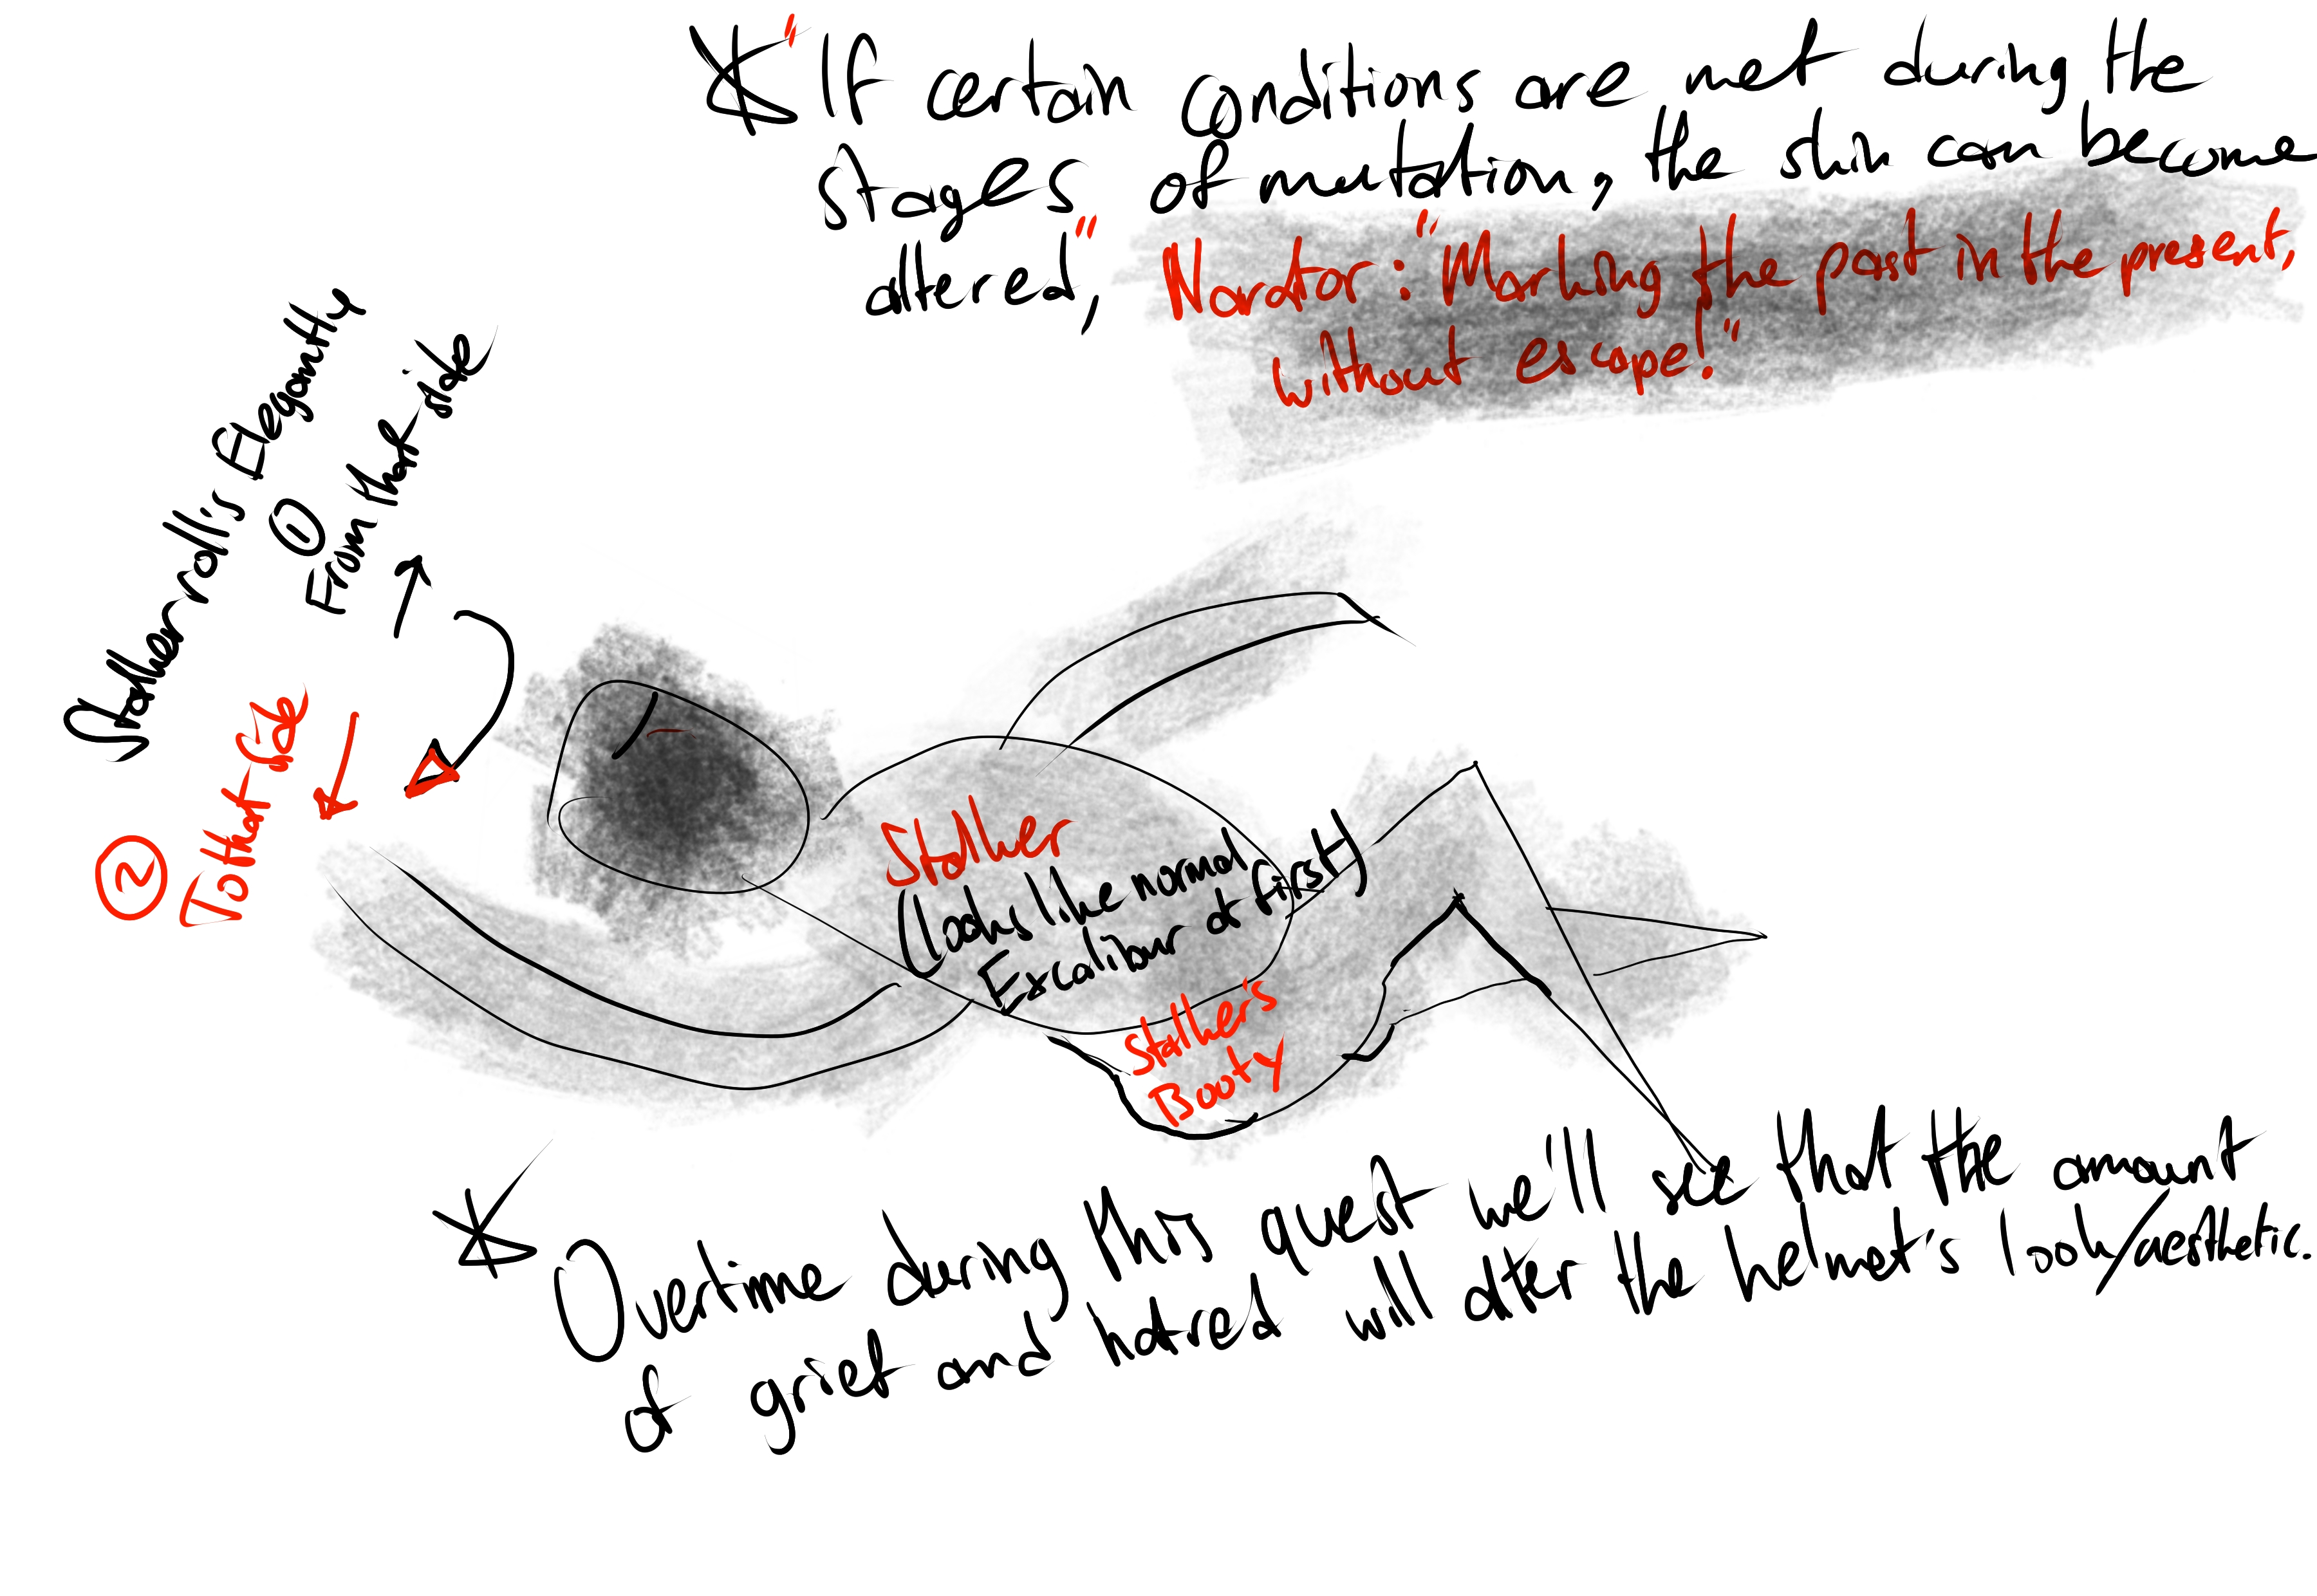 "If certain conditions are met during the
stages of mutation, the skin can become
altered", Narator: "Marking the past in the present,
without escape!"
Stalker roll's Elegantly
① From that side
② To that side
Stalker
(looks like normal
Excalibur at first)
Stalker's
Booty
Overtime during this quest we'll see that the amount
of grief and hatred will alter the helmet's look/aesthetic.